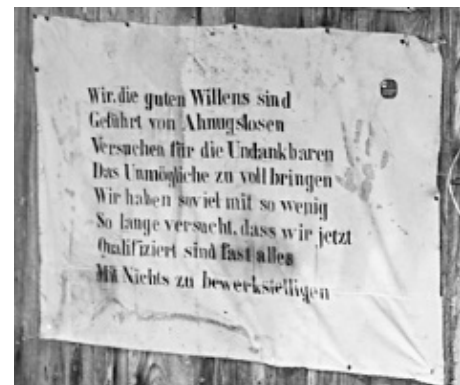 Wir, die guten Willens sind
Geführt von Ahnugslosen
Versuchen für die Undankbaren
Das Unmögliche zu vollbringen
Wir haben soviel mit so wenig
So lange versucht, dass wir jetzt
Qualifiziert sind fast alles
Mit Nichts zu bewerkstelligen